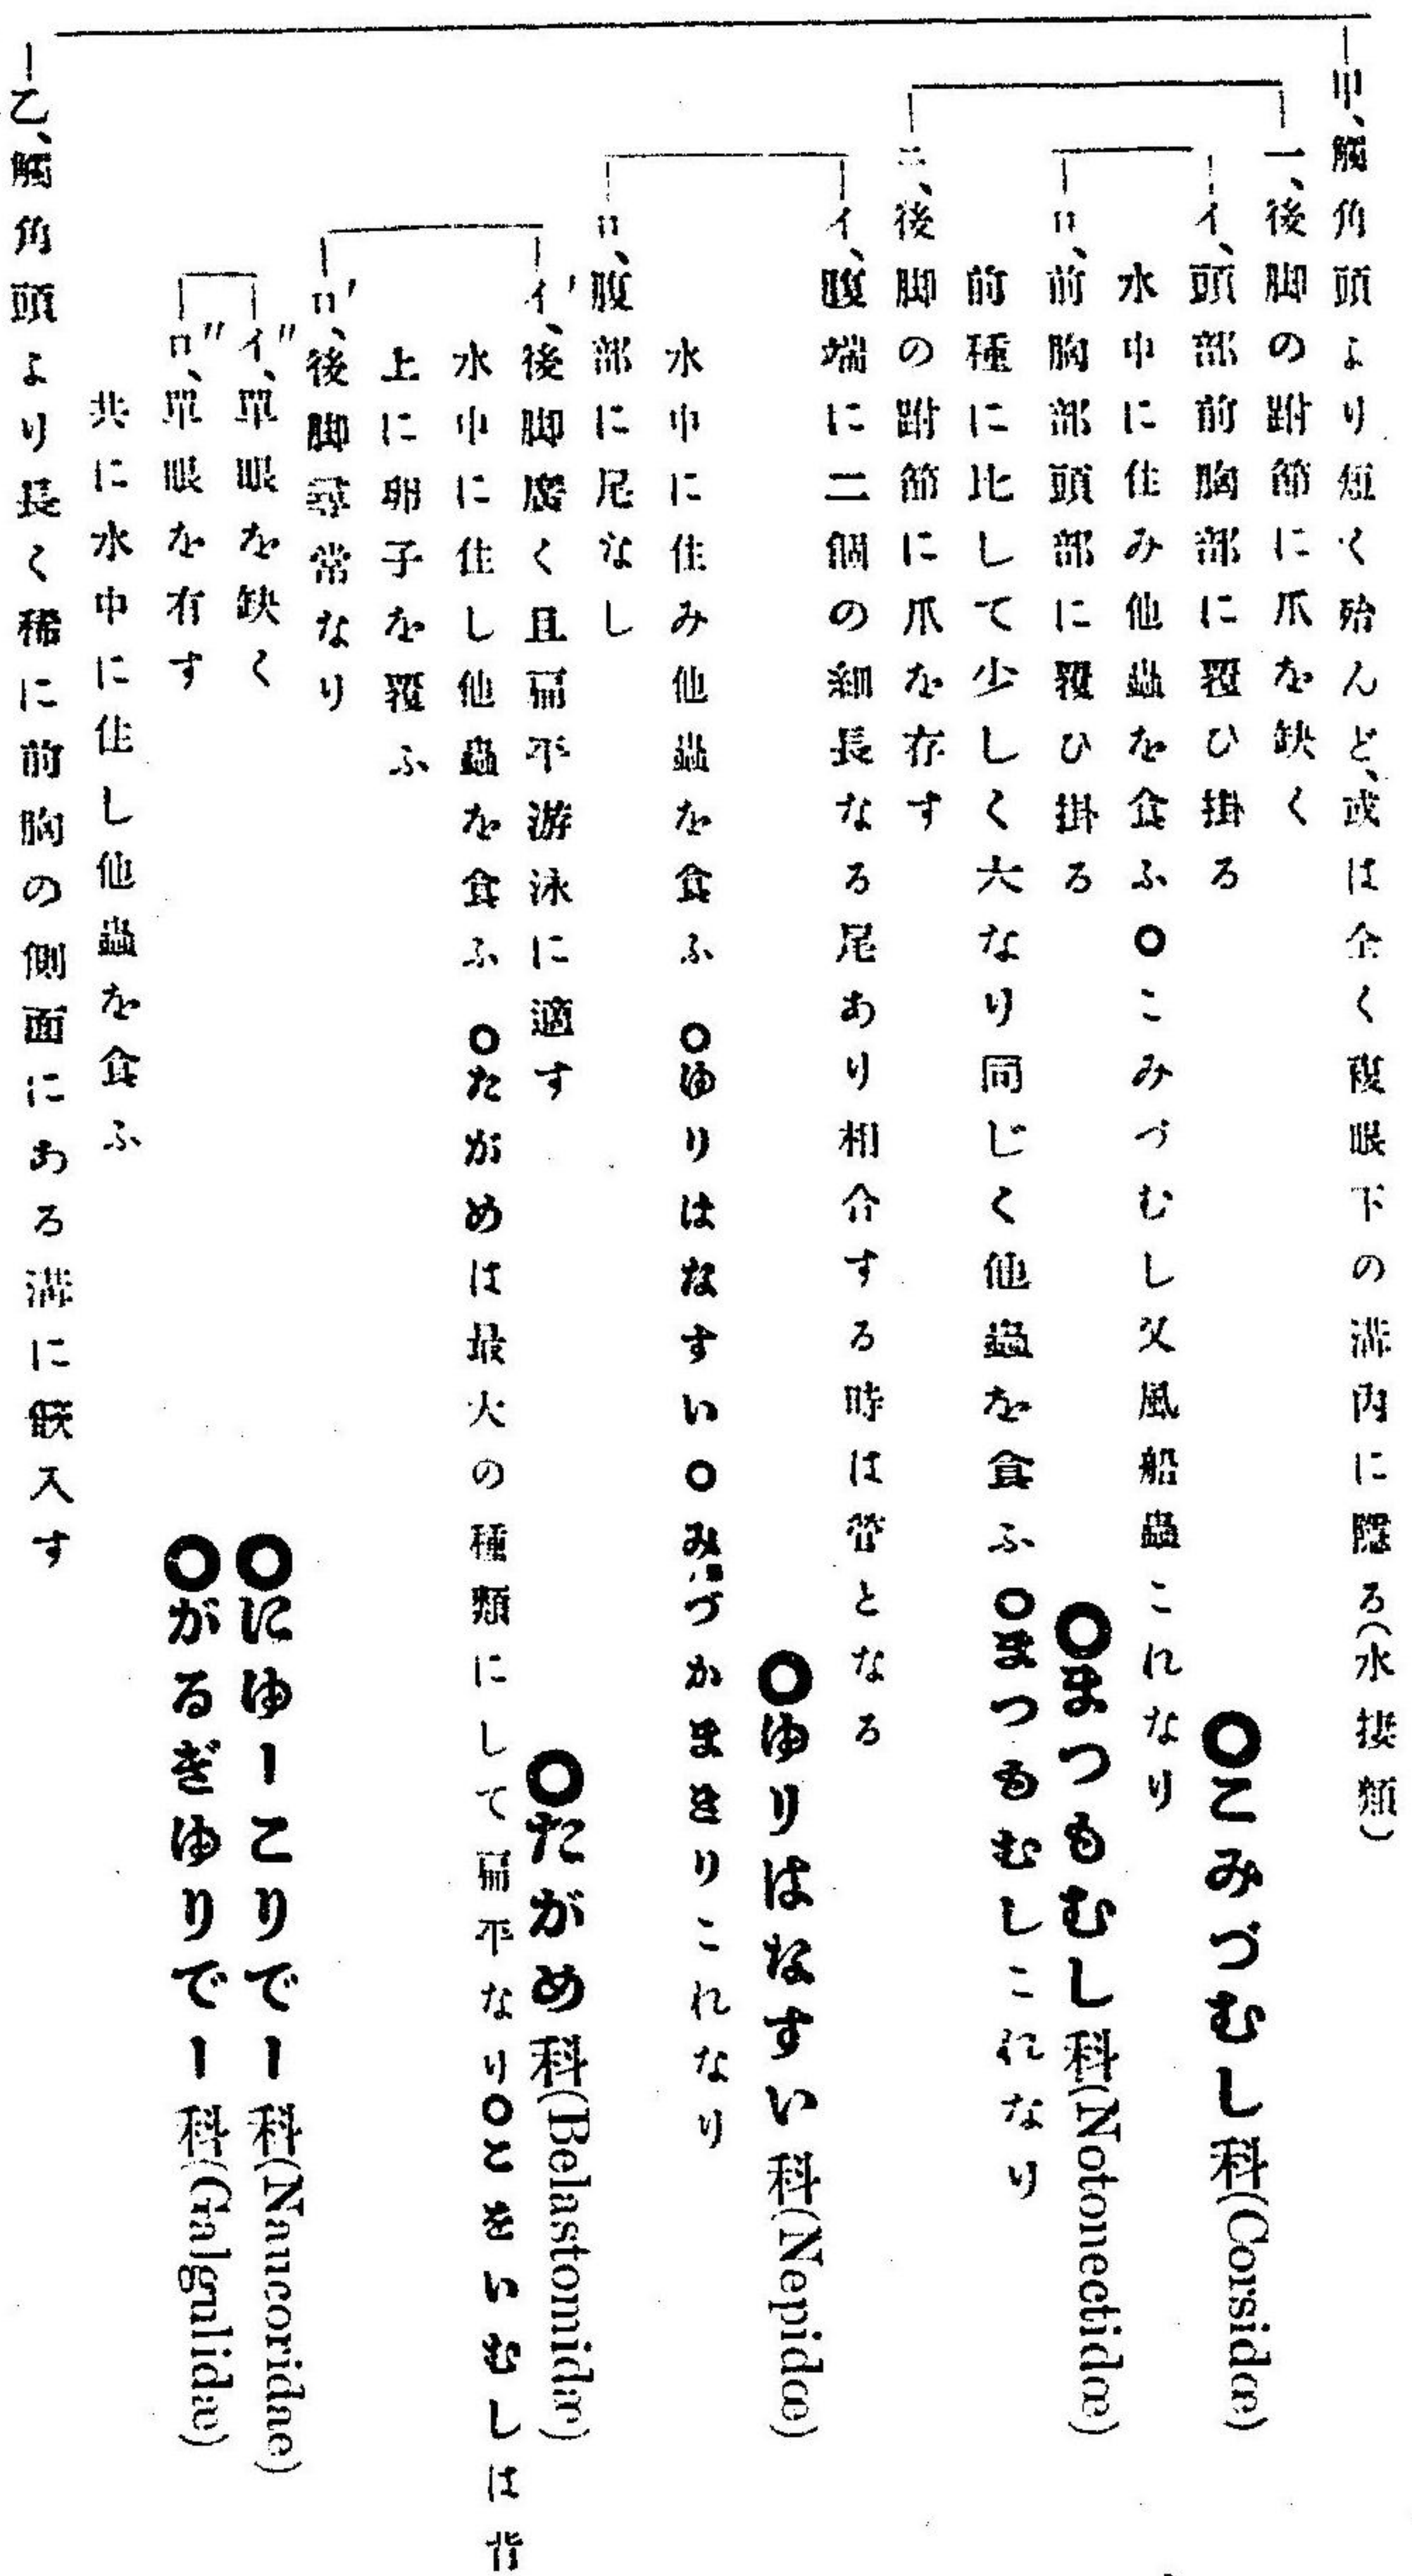 甲、觸角頭より短く殆んど、或は全く複眼下の溝内に隱る(水棲類)
一、後脚の跗節に爪を缺く
イ、頭部前胸部に覆ひ掛る 〇こみづむし科(Corsidœ)
水中に住み他蟲を食ふ〇こみづむし又風船蟲これなり
ロ、前胸部頭部に覆ひ掛る 〇まつもむし科(Notonectidœ)
前種に比して少しく大なり同じく他蟲を食ふ〇まつもむしこれなり
二、後脚の跗節に爪を存す
イ、腹端に二個の細長なる尾あり相合する時は管となる
〇ゆりはなすい科(Nepidœ)
水中に住み他蟲を食ふ 〇ゆりはなすい〇みづかまきりこれなり
ロ、腹部に尾なし
イ′、後脚廣く且扁平游泳に適す 〇たがめ科(Belastomidæ)
水中に住し他蟲を食ふ 〇たがめは最大の種類にして扁平なり〇こをいむしは背
上に卵子を覆ふ
ロ′、後脚尋常なり
イ″、單眼を缺く 〇にゆーこりでー科(Naucoridae)
ロ″、單眼を有す 〇がるぎゆりでー科(Galgulidæ)
共に水中に住し他蟲を食ふ
乙、觸角頭より長く稀に前胸の側面にある溝に嵌入す